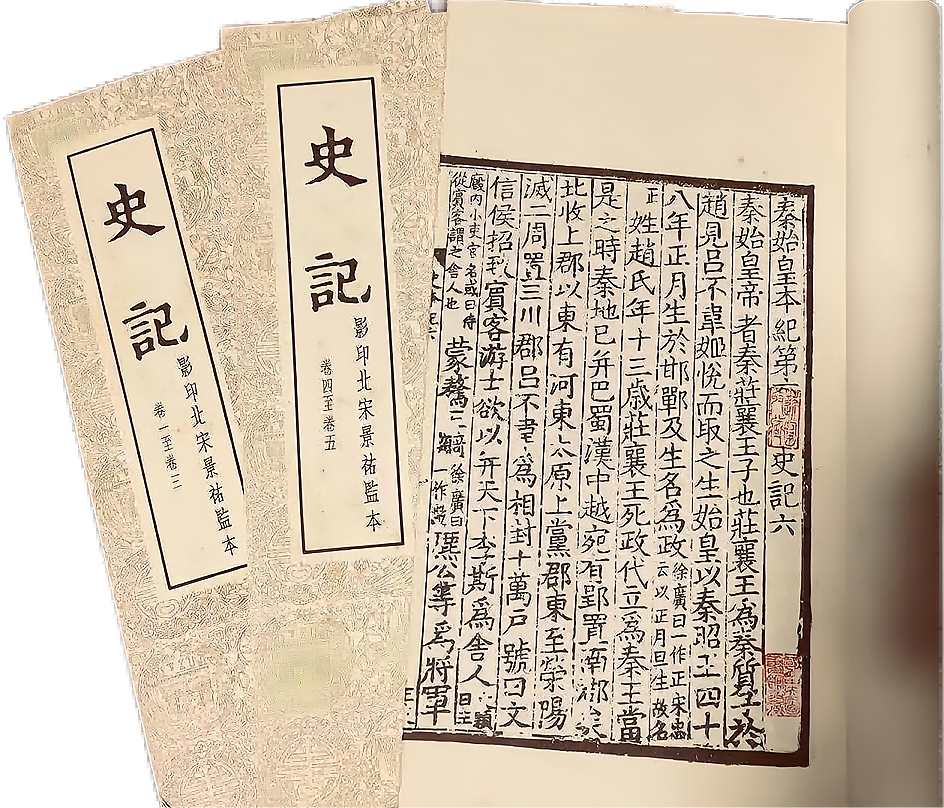 史記
影印北宋景祐監本
卷一至卷三
史記
影印北宋景祐監本
卷四至卷五
秦始皇本紀第 史記六
秦始皇帝者秦莊襄王子也莊襄王爲秦質子於
趙見呂不韋姬悅而取之生始皇以秦昭王四十
八年正月生於邯鄲及生名爲政徐廣曰一作正宋忠
云以正月旦生故名
正姓趙氏年十三歲莊襄王死政代立爲秦王當
是之時秦地已并巴蜀漢中越宛有郢置南郡矣
北收上郡以東有河東太原上黨郡東至滎陽
滅二周置三川郡呂不韋爲相封十萬戶號曰文
信侯招致賓客游士欲以并天下李斯爲舍人文穎
曰主
廄內小吏官名或曰侍
從賓客謂之舍人也
蒙驁王齮徐廣曰
一作齕
麃公等爲將軍